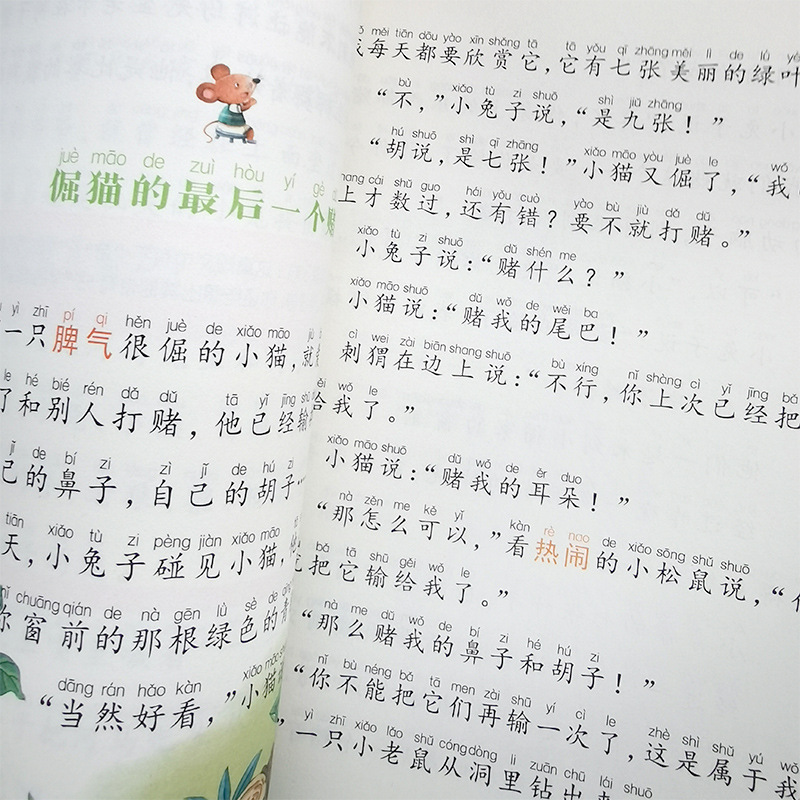 juè māo de zuì hòu yí gè
倔猫的最后一个赌
yì zhī pí qi hěn juè de xiǎo māo
一只脾气很倔的小猫，就
le hé bié rén dǎ dǔ tā yǐ jīng
了和别人打赌，他已经输
jǐ de bí zi zì jǐ de hú zi
己的鼻子，自己的胡子
tiān xiǎo tù zi pèng jiàn xiǎo māo
天，小兔子碰见小猫，
nǐ chuāng qián de nà gēn lǜ sè de
你窗前的那根绿色的青
dāng rán hǎo kàn xiǎo māo
“当然好看，”小猫
měi tiān dōu yào xīn shǎng tā tā yǒu qī zhāng měi lì de lǜ yè
我每天都要欣赏它，它有七张美丽的绿叶
bù xiǎo tù zi shuō shì jiǔ zhāng
“不，”小兔子说，“是九张！”
hú shuō shì qī zhāng xiǎo māo yòu juè le wǒ
“胡说，是七张！”小猫又倔了，“我
shang cái shǔ guo hái yǒu cuò yào bù jiù dǎ dǔ
上才数过，还有错？要不就打赌。”
xiǎo tù zi shuō dǔ shén me
小兔子说：“赌什么？”
xiǎo māo shuō dǔ wǒ de wěi ba
小猫说：“赌我的尾巴！”
cì wei zài biān shang shuō bù xíng nǐ shàng cì yǐ jīng bǎ
刺猬在边上说：“不行，你上次已经把
gěi wǒ le
给我了。”
xiǎo māo shuō dǔ wǒ de ěr duo
小猫说：“赌我的耳朵！”
nà zěn me kě yǐ kàn rè nao de xiǎo sōng shǔ shuō
“那怎么可以，”看热闹的小松鼠说，“你
bǎ tā shū gěi wǒ le
把它输给我了。”
nà me dǔ wǒ de bí zi hé hú zi
“那么赌我的鼻子和胡子！”
nǐ bù néng bǎ tā men zài shū yí cì le zhè shì shǔ yú wǒ
“你不能把它们再输一次了，这是属于我
yì zhī xiǎo lǎo shǔ cóng dòng li zuān chū lái shuō
一只小老鼠从洞里钻出来